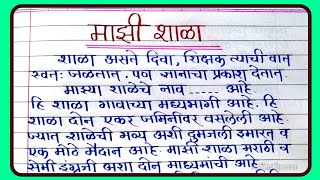 माझी शाळा
शाळा असते दिवा, शिक्षक त्याची वात
स्वतः जळतात, पण ज्ञानाचा प्रकाश देतात.
माझ्या शाळेचे नाव ----- आहे.
हि शाळा गावाच्या मध्यभागी आहे. हि
शाळा दोन एकर जमिनीवर वसलेली आहे.
ज्यात शाळेची भव्य अशी दुमजली इमारत व
एक मोठे मैदान आहे. माझी शाळा मराठी व
सेमी इंग्रजी अशा दोन माध्यमांची आहे.